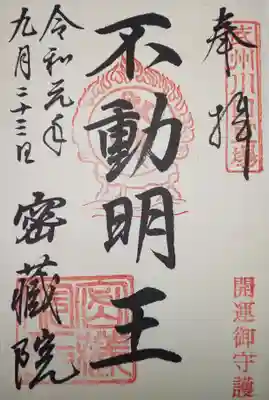 奉拝
開運御守護
不動明王
密蔵院
令和元年
九月二十三日